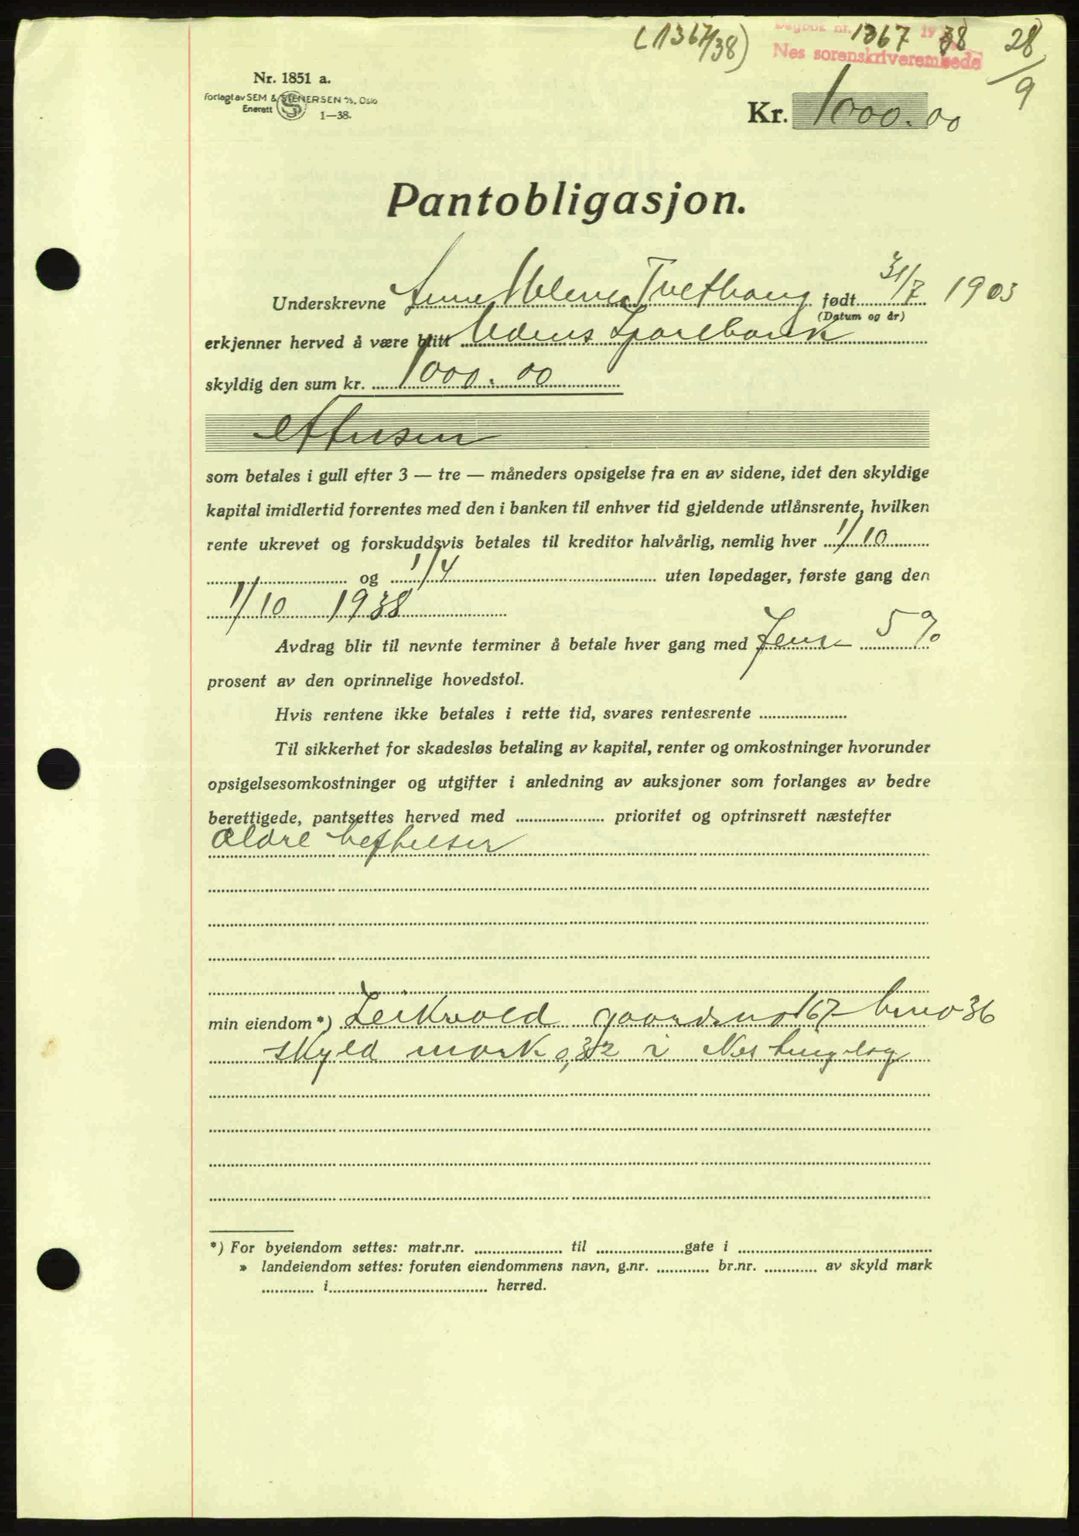 (1367/38)
Dagbok nr. 1367 1938
28/9
Nes sorenskriverembede
Nr. 1851 a.
Forlagt av SEM & STENERSEN A/S, Oslo
Enerett 1—38.
Kr. 1000.00
Pantobligasjon.
Underskrevne Anne Helene Tvethaug født 31/7 1903
(Datum og år)
erkjenner herved å være blitt Udens Sparebank
skyldig den sum kr. 1000.00
ettusen
som betales i gull efter 3 — tre — måneders opsigelse fra en av sidene, idet den skyldige
kapital imidlertid forrentes med den i banken til enhver tid gjeldende utlånsrente, hvilken
rente ukrevet og forskuddsvis betales til kreditor halvårlig, nemlig hver 1/10
og 1/4 uten løpedager, første gang den
1/10 1938
Avdrag blir til nevnte terminer å betale hver gang med fem 5 %
prosent av den oprinnelige hovedstol.
Hvis rentene ikke betales i rette tid, svares rentesrente
Til sikkerhet for skadesløs betaling av kapital, renter og omkostninger hvorunder
opsigelsesomkostninger og utgifter i anledning av auksjoner som forlanges av bedre
berettigede, pantsettes herved med prioritet og optrinsrett næstefter
ældre heftelser
min eiendom *) Leikvold gaardsno 167 brno 36
skyld mark 0,32 i Nes tinglag
*) For byeiendom settes: matr.nr. til gate i
» landeiendom settes: foruten eiendommens navn, g.nr. br.nr. av skyld mark
i herred.